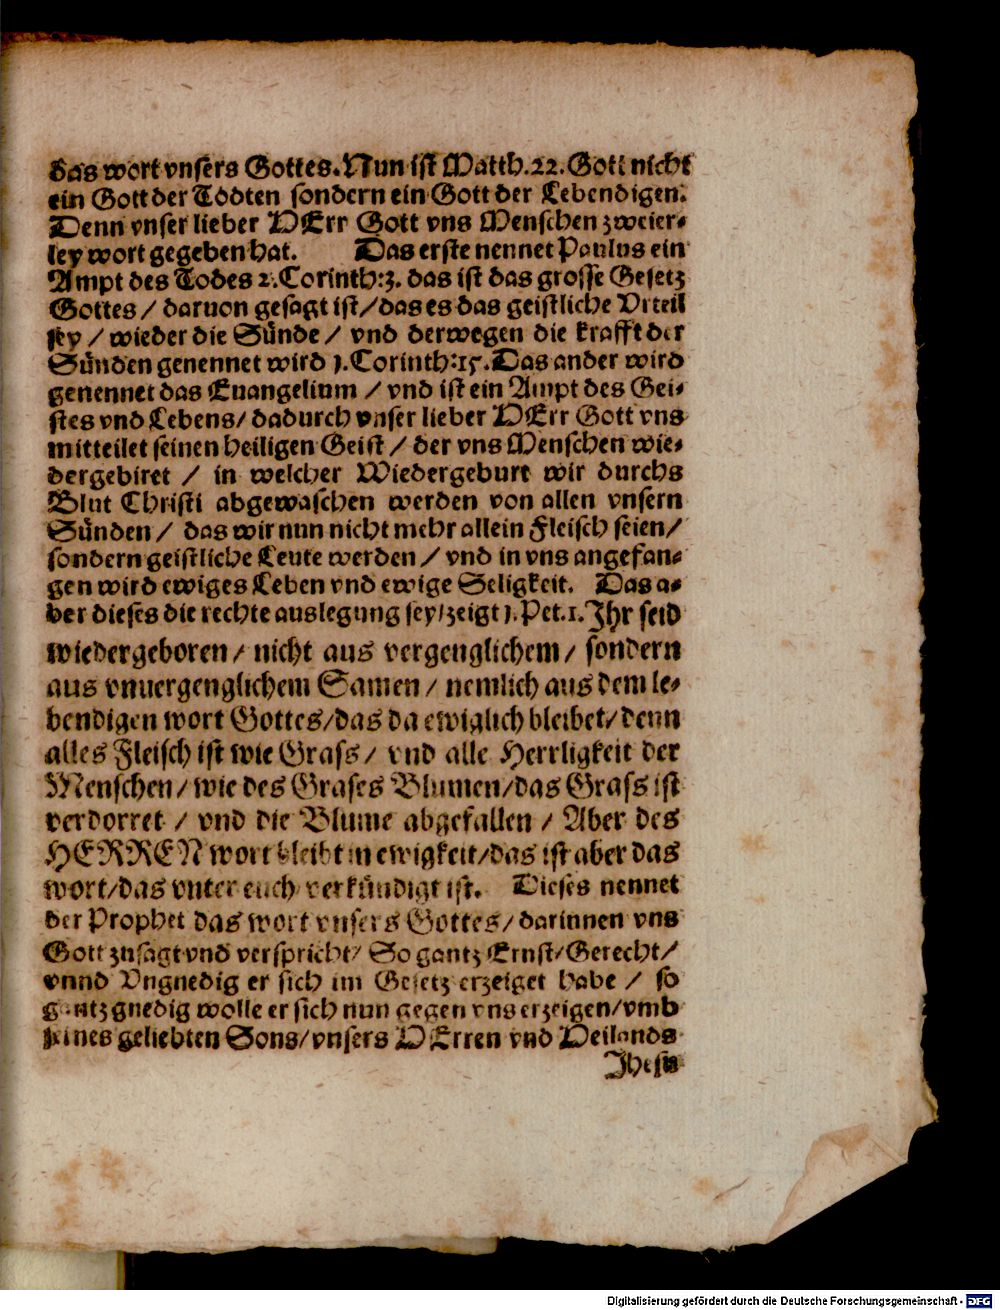 das wort vnsers Gottes. Nun ist Matth. 22. Gott nicht
ein Gott der Todten sondern ein Gott der Lebendigen.
Denn vnser lieber HErr Gott vns Menschen zweier-
ley wort gegeben hat. Das erste nennet Paulus ein
Ampt des Todes 2. Corinth: 3. das ist das grosse Gesetz
Gottes / daruon gesagt ist / das es das geistliche Vrteil
sey / wieder die Sünde / vnd derwegen die krafft der
Sünden genennet wird 1. Corinth: 15. Das ander wird
genennet das Euangelium / vnd ist ein Ampt des Gei-
stes vnd Lebens / dadurch vnser lieber HErr Gott vns
mitteilet seinen heiligen Geist / der vns Menschen wie-
dergebiret / in welcher Wiedergeburt wir durchs
Blut Christi abgewaschen werden von allen vnsern
Sünden / das wir nun nicht mehr allein Fleisch seien /
sondern geistliche Leute werden / vnd in vns angefan-
gen wird ewiges Leben vnd ewige Seligkeit. Das a-
ber dieses die rechte auslegung sey / zeigt 1. Pet. 1. Ihr seid
wiedergeboren / nicht aus vergenglichem / sondern
aus vnuergenglichem Samen / nemlich aus dem le-
bendigen wort Gottes / das da ewiglich bleibet / denn
alles Fleisch ist wie Grass / vnd alle Herrligkeit der
Menschen / wie des Grases Blumen / das Grass ist
verdorret / vnd die Blume abgefallen / Aber des
HERREN wort bleibt in ewigkeit / das ist aber das
wort / das vnter euch verkündigt ist. Dieses nennet
der Prophet das wort vnsers Gottes / darinnen vns
Gott zusagt vnd verspricht / So gantz Ernst / Gerecht /
vnnd Vngnedig er sich im Gesetz erzeiget habe / so
gantz gnedig wolle er sich nun gegen vns erzeigen / vmb
seines geliebten Sons / vnsers HErren vnd Heilands
Jhesu
Digitalisierung gefördert durch die Deutsche Forschungsgemeinschaft - DFG